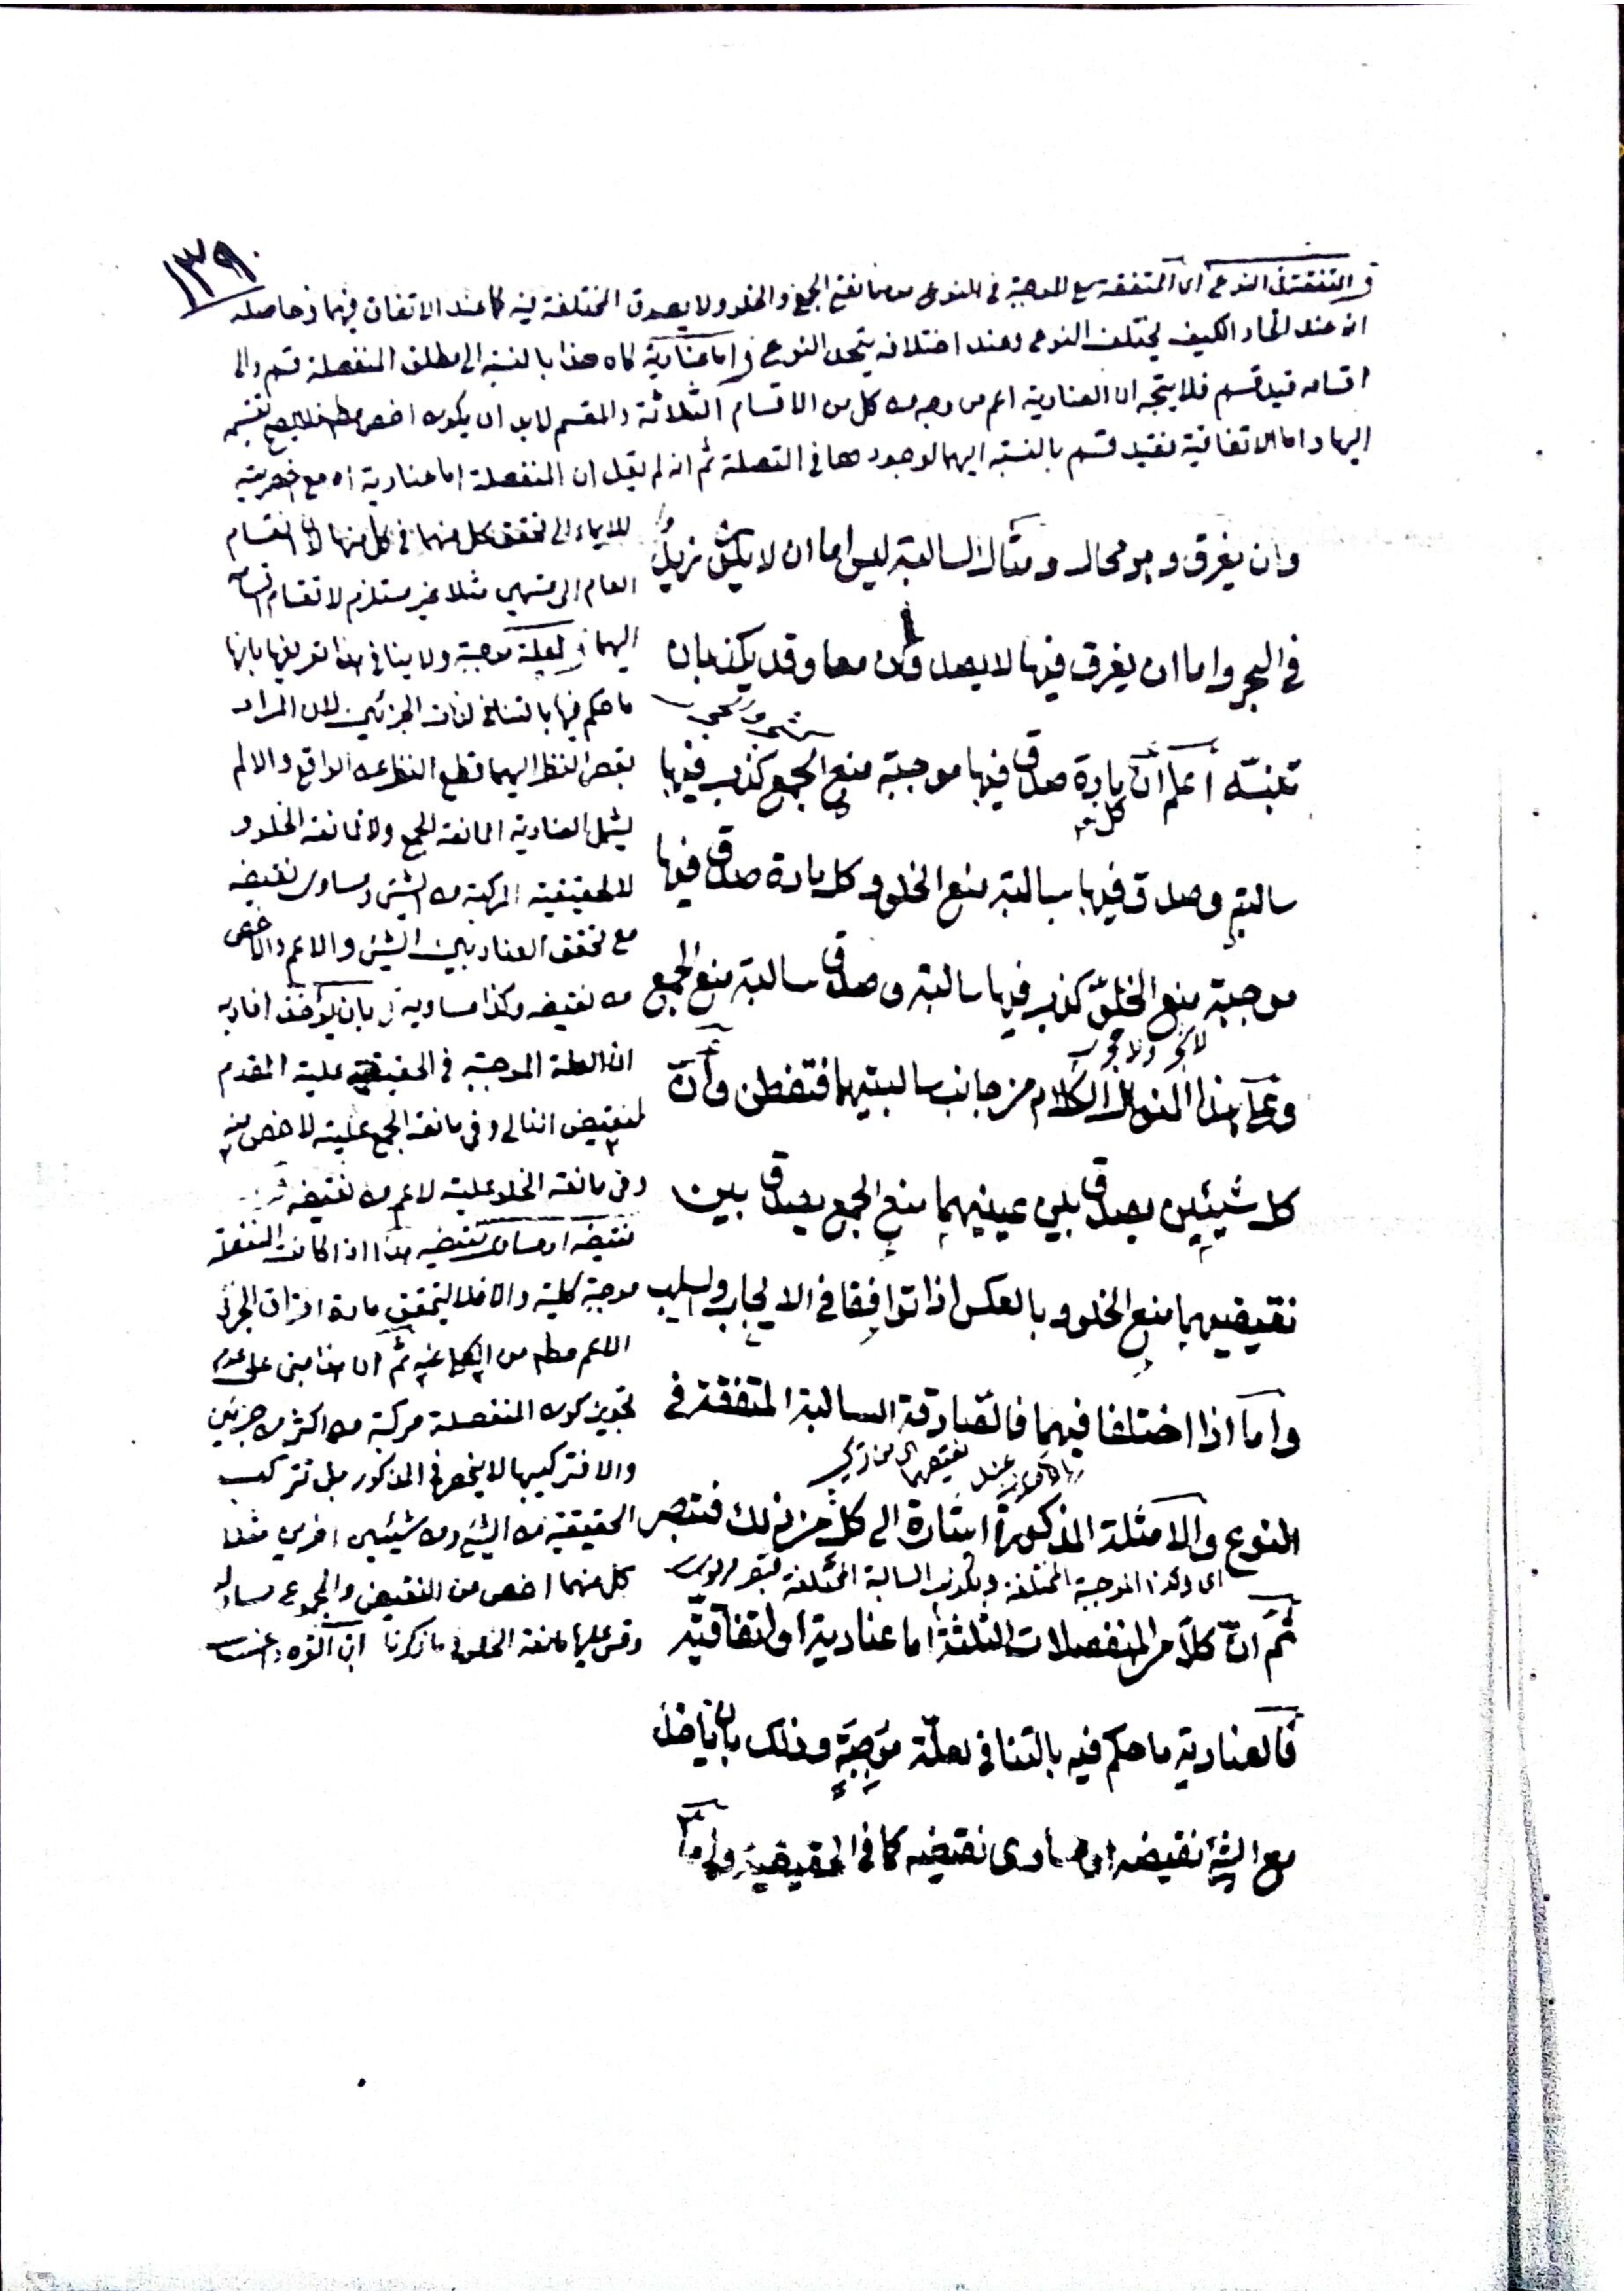 ١٣٩
المتفقة في النوع اى المتفقة مع الموجبة في النوع من مانعتى الجمع والخلو ولا يصدق المختلفة فيه كما عند الاتفاق فيهما وحاصله
انه عند اتحاد الكيف يختلف النوع وعند اختلافه يتحد النوع اما عنادية اه هذا بالنسبة الى مطلق المنفصلة قسم والى
اقسامه قيد قسم فلا يتجه ان العنادية اعم من وجه من كل من الاقسام الثلاثة والمقسم لابد ان يكون اخص فلا يصح تقسيمه
اليها واما الاتفاقية فقيد قسم بالنسبة اليهما لوجودها في المتصلة ثم انه لم يقل ان المنفصلة اما عنادية اه مع
وان يغرق وهو محال ومثال السالبة ليس اما ان لا يكون زيد
في البحر واما ان يغرق فيها لا يصدقان معا وقد يكذبان
شجر وحجر
تنبيه اعلم ان كل مادة صدق فيها موجبة منع الجمع كذب فيها
سالبته وصدق فيها سالبة منع الخلو وكل مادة صدق فيها
موجبة منع الخلو كذب فيها سالبته وصدق سالبة منع الجمع
لا شجر ولا حجر
وعلى هذا المنوال الكلام من جانب سالبتيهما فتفطن وان
كل شيئين يصدق بين عينيهما منع الجمع يصدق بين
نقيضيهما منع الخلو وبالعكس اذا توافقا في الايجاب والسلب
واما اذا اختلفا فيهما فالصادقة السالبة المتفقة في
النوع والامثلة المذكورة اشارة الى كل من ذلك فتبصر
اى وكذا الموجبة المختلفة وتكذب السالبة المختلفة
ثم ان كلا من المنفصلات الثلثة اما عنادية او اتفاقية
فالعنادية ما حكم فيه بالتنافي لعلة موجبة وذلك بان يأخذ
مع الشئ نقيضه او مساوى نقيضه كما في الحقيقية واما
للايماء الى تحقق كل منهما في كل منها لان انقسام
العام الى قسمين مثلا غير مستلزم لانقسام اقسامه
اليهما لعلة موجبة ولا ينافى هذا تعريفها بانها
ما حكم فيها بالتنافى لذات الجزئين لان المراد
النظر اليهما قطع النظر عن الواقع والا لم
يشمل العنادية المانعة الجمع ولا مانعة الخلو
للحقيقية المركبة من الشئ ومساوى نقيضه
مع تحقق العناد بين الشئ والاعم والاخص
من نقيضه وكذا مساويه بان يؤخذ افاد به
ان العلة الموجبة في الحقيقية علية المقدم
لنقيض التالى وفى مانعة الجمع علية لاخص منه
وفى مانعة الخلو علية لاعم من نقيضه
نقيضه او مساوى نقيضه هذا اذا كانت المنفصلة
موجبة كلية والا فلا لتحقق مادة افتراق الجزئى
الاعم من الكلى عنه ثم ان هذا مبنى على عدم
تجويز كون المنفصلة مركبة من اكثر من جزئين
والا فتركيبها لا ينحصر فى المذكور بل تتركب
الحقيقية من الشئ ومن شيئين اخرين مثلا
كل منهما اخص من النقيض والمجموع مساو له
وقس عليها مانعة الخلو فى ما ذكرنا ابن القره داغى